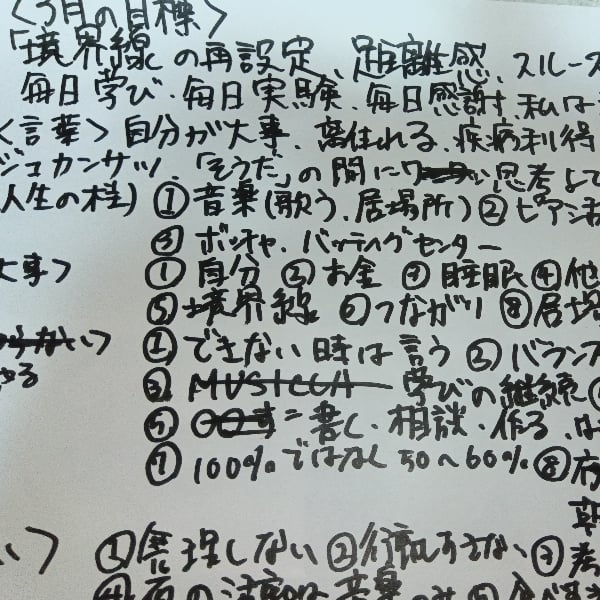 <3月の目標>
「境界線」の再設定、距離感、スルース
毎日学び・毎日実験、毎日感謝、私は
<言葉>自分が大事、離れる、疾病利得
ジコカンサツ、「そうだ」の間に 思考よ
人生の柱) ①音楽(歌う、居場所) ②ピア活
③ボッチャ、バッティングセンター
大事> ①自分 ②お金 ③睡眠 ④他
⑤境界線 ⑥つながり ⑧居場
①できない時は言う ②バランス
③ MUSICCA 学びの継続
⑤ 書く・相談・作る、は
⑦100%ではなく50〜60% ⑧
朝
①無理しない ②行動しすぎない ③考
④ 音楽のみ ⑤